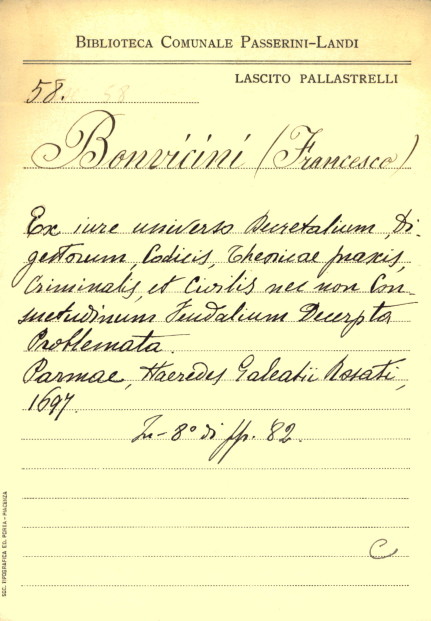 BIBLIOTECA COMUNALE PASSERINI-LANDI
LASCITO PALLASTRELLI
58. 58
Bonvicini (Francesco)
Ex iure universo Decretalium, Di-
gestorum, Codicis, Theoricae praxis,
Criminalis, et Civilis nec non Con-
suetudinum Feudalium Decerpta
Problemata.
Parmae, Haeredes Galeatii Rosati,
1697.
In-8° di pp. 82.
C
SOC. TIPOGRAFICA ED. PORTA - PIACENZA